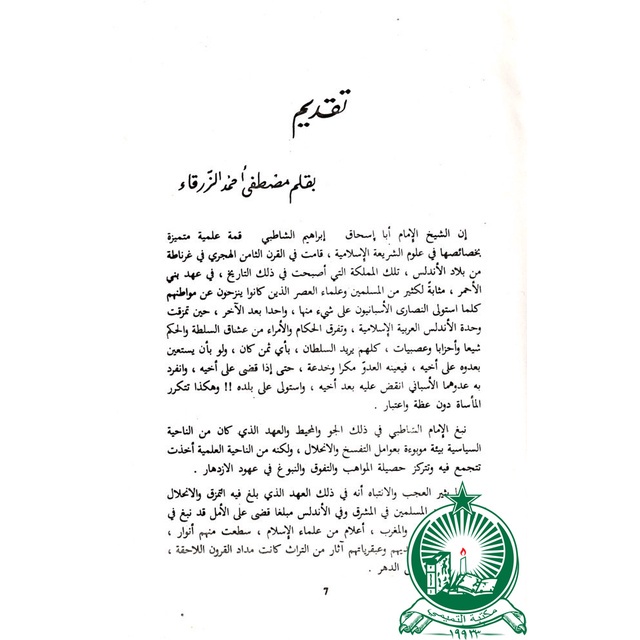 تقديم
بقلم مصطفى أحمد الزّرقاء
إن الشيخ الإمام أبا إسحاق إبراهيم الشاطبي قمة علمية متميزة
بخصائصها في علوم الشريعة الإسلامية ، قامت في القرن الثامن الهجري في غرناطة
من بلاد الأندلس ، تلك المملكة التي أصبحت في ذلك التاريخ ، في عهد بني
الأحمر ، مثابةً لكثير من المسلمين وعلماء العصر الذين كانوا ينزحون عن مواطنهم
كلما استولى النصارى الأسبانيون على شيء منها ، واحدا بعد الآخر ، حين تمزقت
وحدة الأندلس العربية الإسلامية ، وتفرق الحكام والأمراء من عشاق السلطة والحكم
شيعا وأحزابا وعصبيات ، كلهم يريد السلطان ، بأي ثمن كان ، ولو بأن يستعين
بعدوه على أخيه ، فيعينه العدوّ مكرا وخدعة ، حتى إذا قضى على أخيه ، وانفرد
به عدوهما الأسباني انقض عليه بعد أخيه ، واستولى على بلده !! وهكذا تتكرر
المأساة دون عظة واعتبار .
نبغ الإمام الشاطبي في ذلك الجو والمحيط والعهد الذي كان من الناحية
السياسية بيئة موبوءة بعوامل التفسخ والانحلال ، ولكنه من الناحية العلمية أخذت
تتجمع فيه وتتركز حصيلة المواهب والتفوق والنبوغ في عهود الازدهار .
يثير العجب والانتباه أنه في ذلك العهد الذي بلغ فيه التمزق والانحلال
المسلمين في المشرق وفي الأندلس مبلغا قضى على الأمل قد نبغ في
والمغرب ، أعلام من علماء الإسلام ، سطعت منهم أنوار ،
وعبقرياتهم آثار من التراث كانت مداد القرون اللاحقة ،
الدهر .
7
مكتبة التميمي